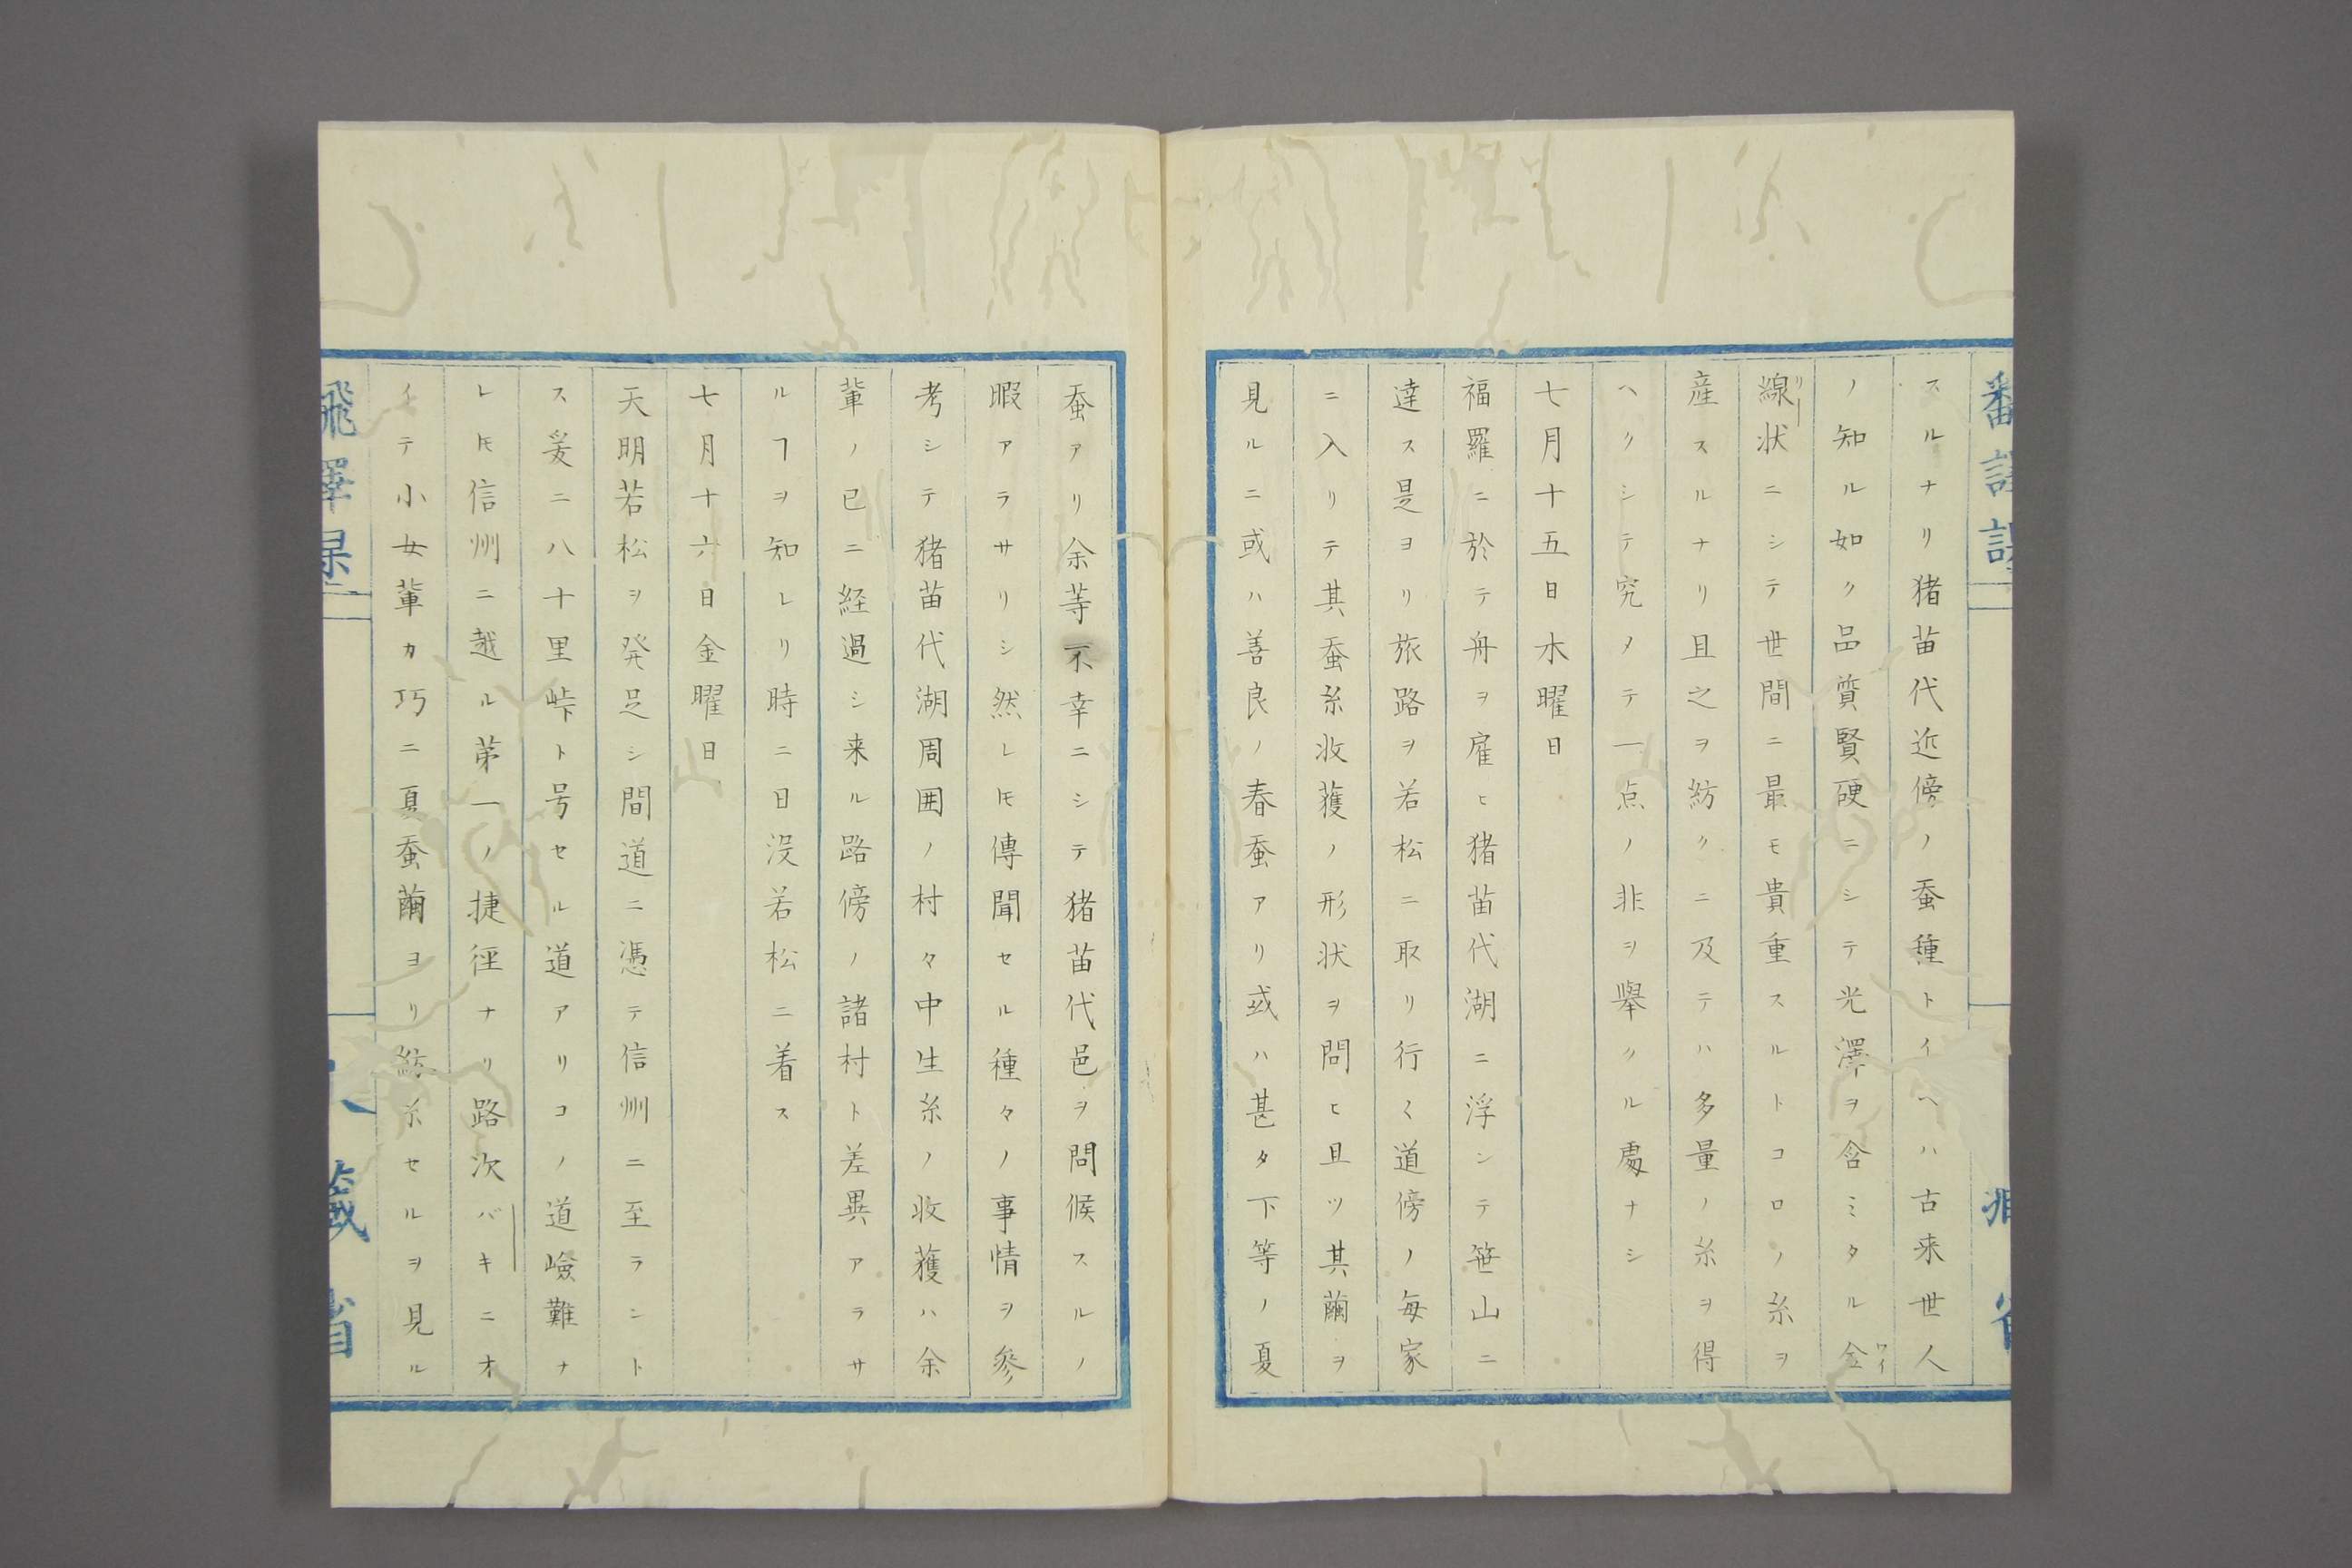 スルナリ猪苗代近傍ノ蚕種トイヘハ古来世人
ノ知ル如ク品質賢硬ニシテ光澤ヲ含ミタル金ワイ
線リー状ニシテ世間ニ最モ貴重スルトコロノ糸ヲ
産スルナリ且之ヲ紡クニ及テハ多量ノ糸ヲ得
ヘクシテ究メテ一点ノ非ヲ擧クル處ナシ
七月十五日木曜日
福羅ニ於テ舟ヲ雇ヒ猪苗代湖ニ浮ンテ笹山ニ
達ス是ヨリ旅路ヲ若松ニ取リ行く道傍ノ毎家
ニ入リテ其蚕糸收獲ノ形状ヲ問ヒ且ツ其繭ヲ
見ルニ或ハ善良ノ春蚕アリ或ハ甚タ下等ノ夏
蚕アリ余等不幸ニシテ猪苗代邑ヲ問候スルノ
暇アラサリシ然レ𪜈傳聞セル種々ノ事情ヲ參
考シテ猪苗代湖周囲ノ村々中生糸ノ收獲ハ余
輩ノ已ニ経過シ来ル路傍ノ諸村ト差異アラサ
ルヿヲ知レリ時ニ日没若松ニ着ス
七月十六日金曜日
天明若松ヲ発足シ間道ニ憑テ信州ニ至ラント
ス爰ニ八十里峠ト号セル道アリコノ道嶮難ナ
レ𪜈信州ニ越ル苐一ノ捷徑ナリ路次バキニオ
イテ小女輩カ巧ニ夏蚕繭ヨリ紡糸セルヲ見ル